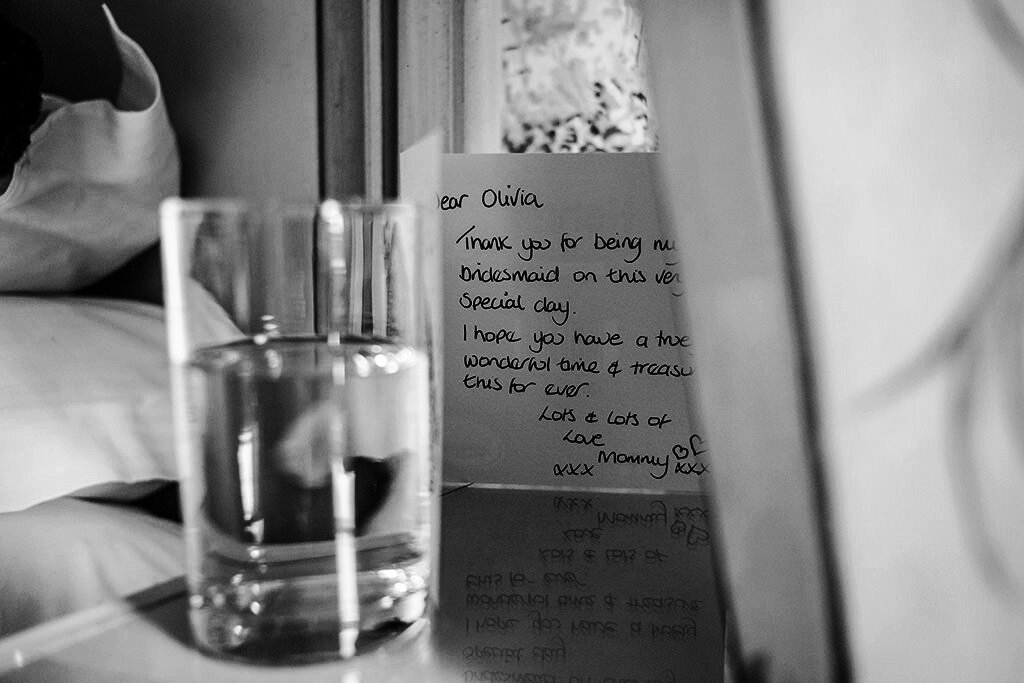 ear Olivia
Thank you for being my
bridesmaid on this very
special day.
I hope you have a true
wonderful time & treasu
this for ever.
Lots & Lots of
Love
Mommy
xxx xxx